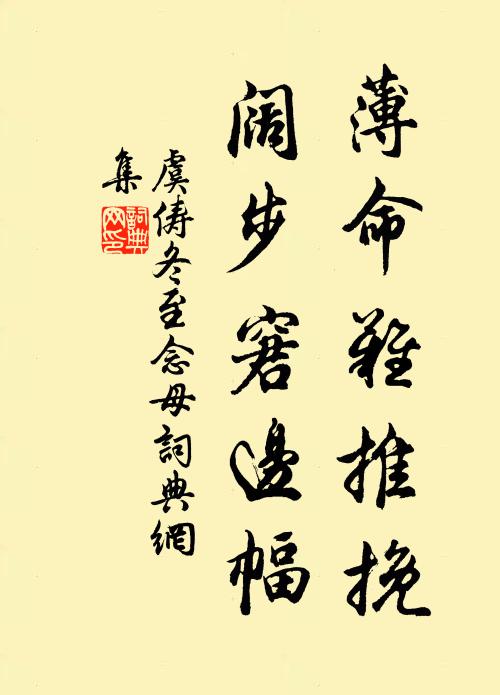 薄命難推挽
闊步窘邊幅
虞儔冬至念母詞典網
集
詞典
网印